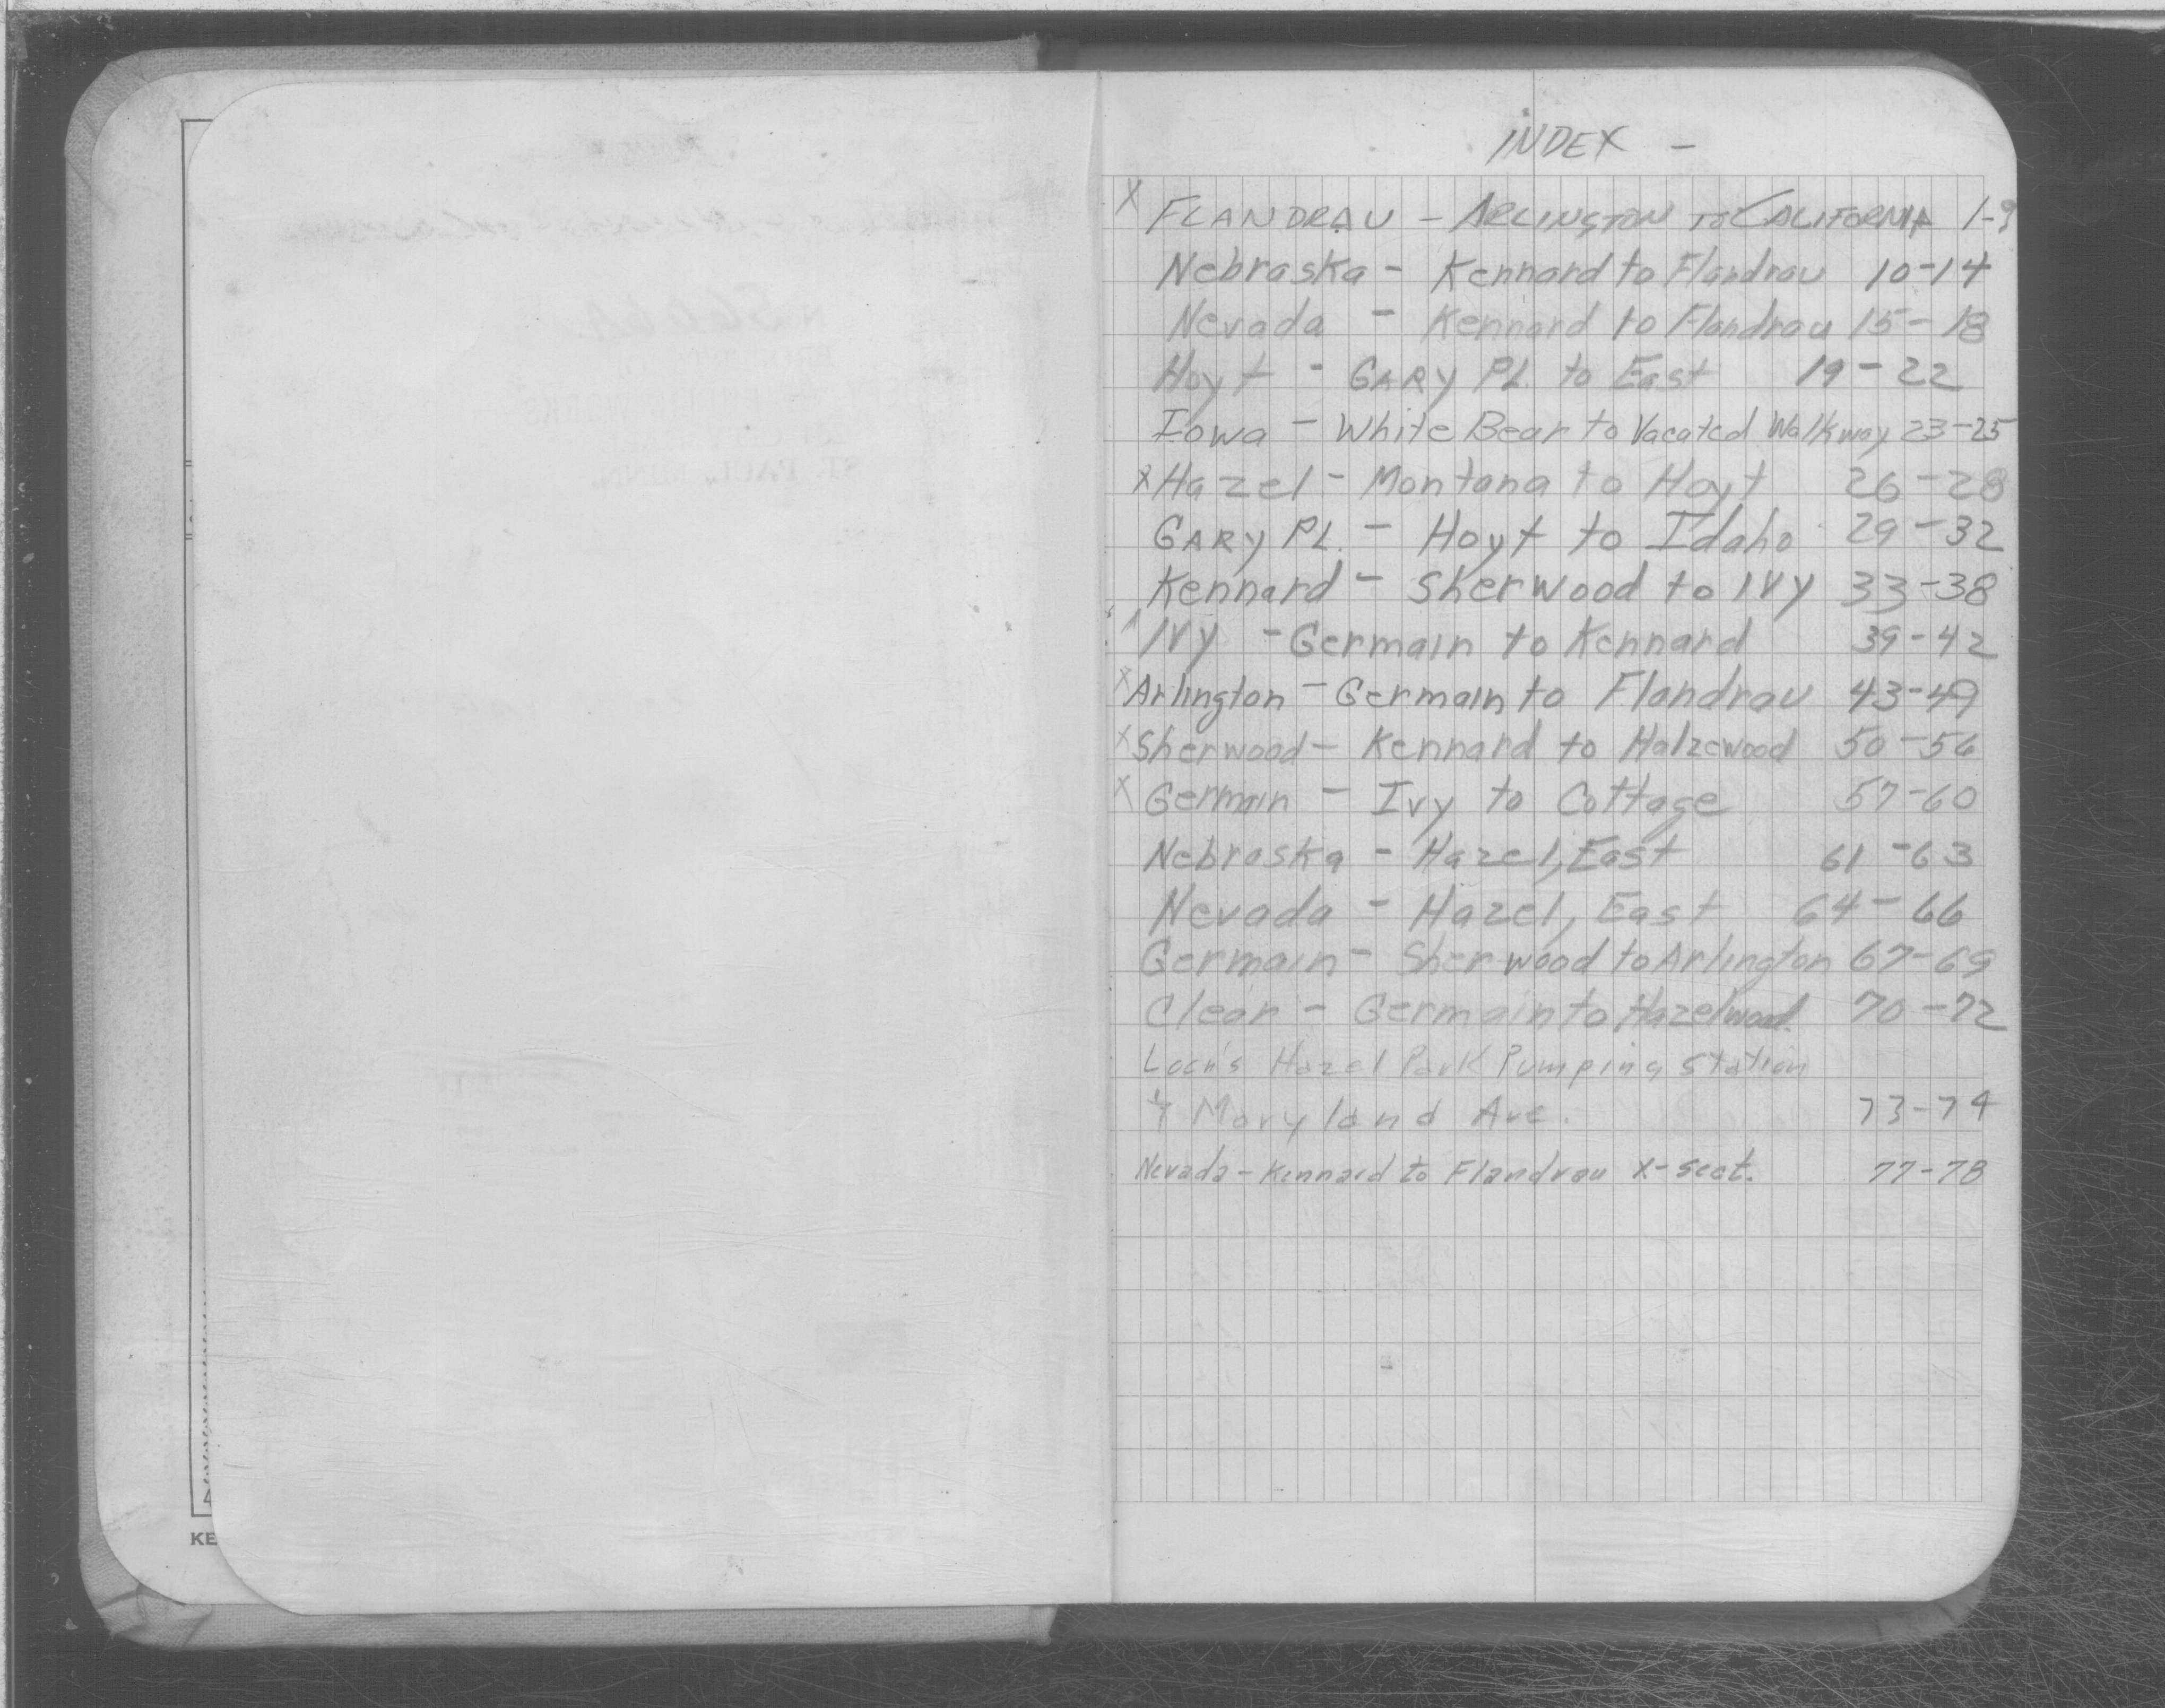 INDEX -
X FLANDRAU - ARLINGTON TO CALIFORNIA 1-9
Nebraska - Kennard to Flandrau 10-14
Nevada - Kennard to Flandrau 15-18
Hoyt - GARY PL. to East 19-22
Iowa - White Bear to Vacated Walkway 23-25
X Hazel - Montana to Hoyt 26-28
GARY PL. - Hoyt to Idaho 29-32
Kennard - Sherwood to IVY 33-38
IVY - Germain to Kennard 39-42
X Arlington - Germain to Flandrau 43-49
X Sherwood - Kennard to Halzewood 50-56
X Germain - Ivy to Cottage 57-60
Nebraska - Hazel, East 61-63
Nevada - Hazel, East 64-66
Germain - Sherwood to Arlington 67-69
Clear - Germain to Hazelwood 70-72
Locn's Hazel Park Pumping Station
& Maryland Ave. 73-74
Nevada - Kennard to Flandrau X-sect. 77-78
KE